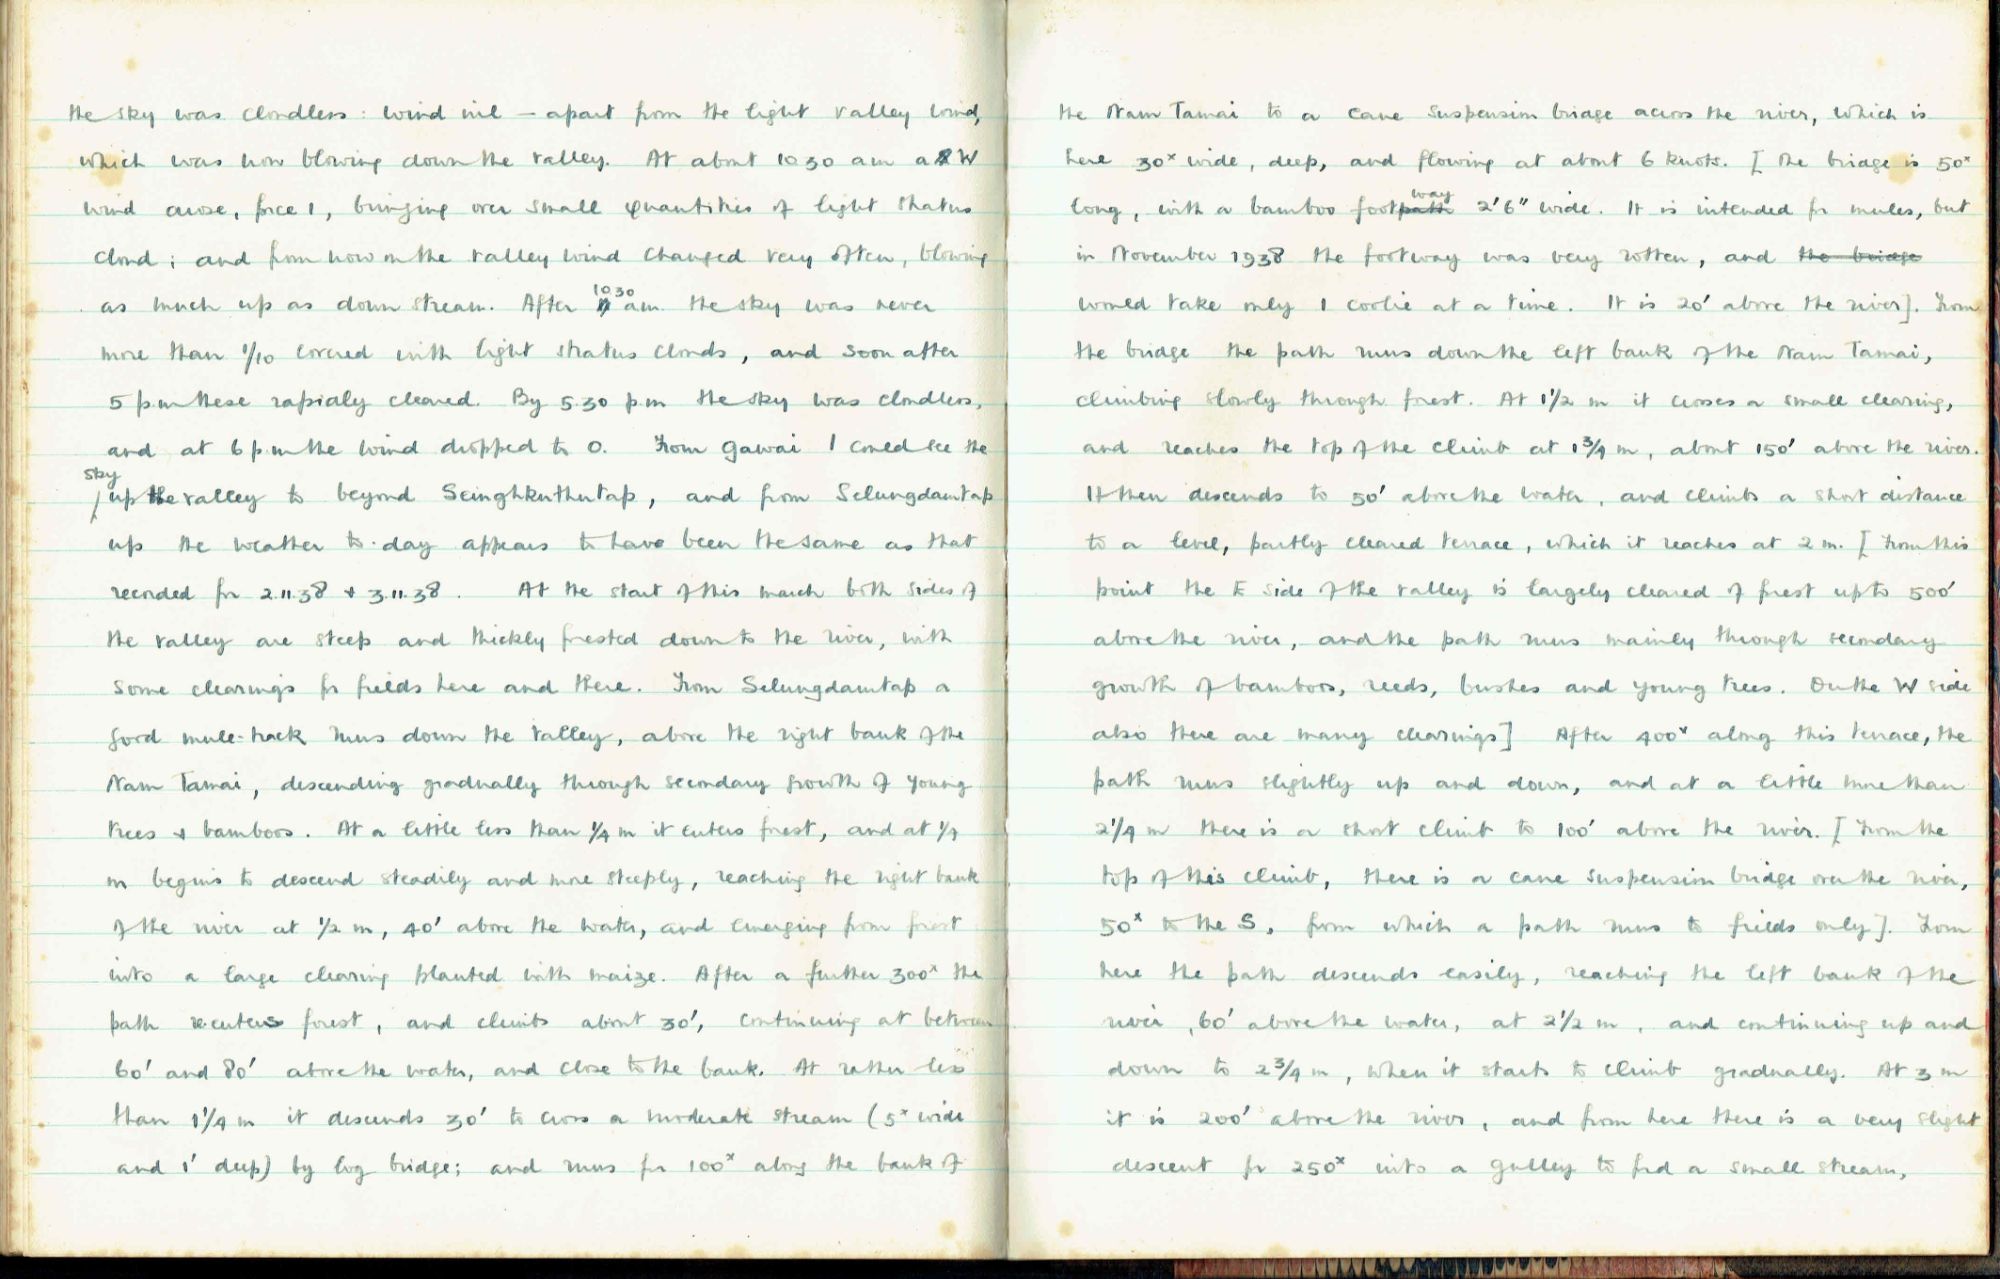 the sky was cloudless : wind nil – apart from the light valley wind,
which was now blowing down the valley. At about 10 30 am a W
wind arose, force 1, bringing over small quantities of light stratus
cloud ; and from now on the valley wind changed very often, blowing
as much up as down stream. After 10 30 am the sky was never
more than 1/10 covered with light stratus clouds, and soon after
5 p.m these rapidly cleared. By 5.30 p.m the sky was cloudless,
and at 6 p.m the wind dropped to 0. From Gawai I could see the
sky up the valley to beyond Seinghkuthutap, and from Selungdamtap
up the weather to-day appears to have been the same as that
recorded for 2.11.38 + 3.11.38. At the start of this march both sides of
the valley are steep and thickly forested down to the river, with
some clearings for fields here and there. From Selungdamtap a
good mule-track runs down the valley, above the right bank of the
Nam Tamai, descending gradually through secondary growth of young
trees + bamboos. At a little less than 1/4 m it enters forest, and at 1/4
m begins to descend steadily and more steeply, reaching the right bank
of the river at 1/2 m, 40' above the water, and emerging from forest
into a large clearing planted with maize. After a further 300ˣ the
path re-enters forest, and climbs about 30', continuing at between
60' and 80' above the water, and close to the bank. At rather less
than 1 1/4 m it descends 30' to cross a moderate stream (5ˣ wide
and 1' deep) by log bridge; and runs for 100ˣ along the bank of
the Nam Tamai to a cane suspension bridge across the river, which is
here 30ˣ wide, deep, and flowing at about 6 knots. [ The bridge is 50ˣ
long, with a bamboo footpath way 2'6" wide. It is intended for mules, but
in November 1938 the footway was very rotten, and the bridge
would take only 1 coolie at a time. It is 20' above the river]. From
the bridge the path runs down the left bank of the Nam Tamai,
climbing slowly through forest. At 1 1/2 m it crosses a small clearing,
and reaches the top of the climb at 1 3/4 m, about 150' above the river.
It then descends to 50' above the water, and climbs a short distance
to a level, partly cleared terrace, which it reaches at 2 m. [ From this
point the E side of the valley is largely cleared of forest up to 500'
above the river, and the path runs mainly through secondary
growth of bamboos, reeds, bushes and young trees. On the W side
also there are many clearings] After 400ˣ along this terrace, the
path runs slightly up and down, and at a little more than
2 1/4 m there is a short climb to 100' above the river. [ From the
top of this climb, there is a cane suspension bridge over the river,
50ˣ to the S, from which a path runs to fields only]. From
here the path descends easily, reaching the left bank of the
river, 60' above the water, at 2 1/2 m, and continuing up and
down to 2 3/4 m, when it starts to climb gradually. At 3 m
it is 200' above the river, and from here there is a very slight
descent for 250ˣ into a gulley to ford a small stream,